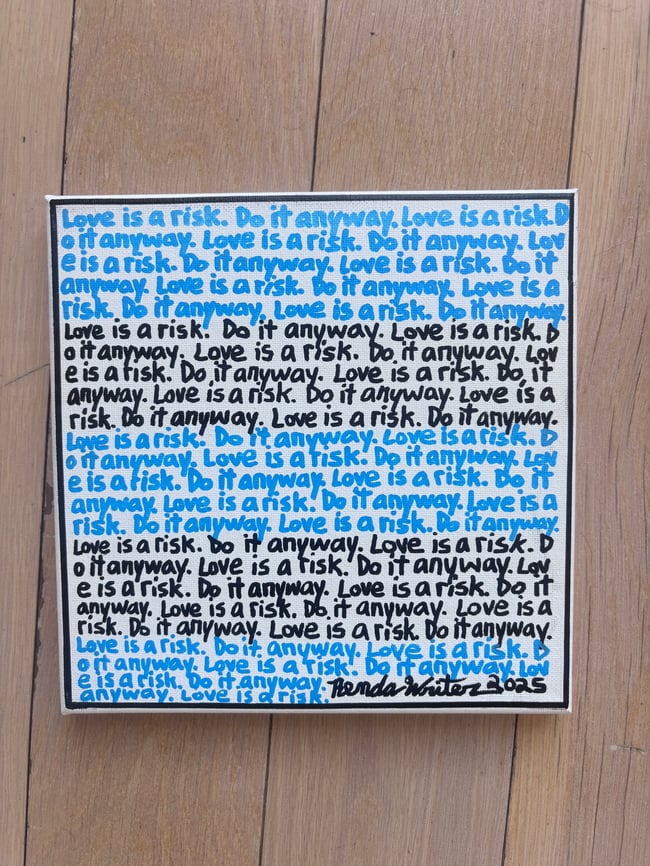 Love is a risk. Do it anyway. Love is a risk. D
o it anyway. Love is a risk. Do it anyway. Lov
e is a risk. Do it anyway. Love is a risk. Do it
anyway. Love is a risk. Do it anyway. Love is a
risk. Do it anyway. Love is a risk. Do it anyway.
Love is a risk. Do it anyway. Love is a risk. D
o it anyway. Love is a risk. Do it anyway. Lov
e is a risk. Do it anyway. Love is a risk. Do it
anyway. Love is a risk. Do it anyway. Love is a
risk. Do it anyway. Love is a risk. Do it anyway.
Love is a risk. Do it anyway. Love is a risk. D
o it anyway. Love is a risk. Do it anyway. Lov
e is a risk. Do it anyway. Love is a risk. Do it
anyway. Love is a risk. Do it anyway. Love is a
risk. Do it anyway. Love is a risk. Do it anyway.
Love is a risk. Do it anyway. Love is a risk. D
o it anyway. Love is a risk. Do it anyway. Lov
e is a risk. Do it anyway. Love is a risk. Do it
anyway. Love is a risk. Do it anyway. Love is a
risk. Do it anyway. Love is a risk. Do it anyway.
Love is a risk. Do it anyway. Love is a risk. D
o it anyway. Love is a risk. Do it anyway. Lov
e is a risk. Do it anyway. Renda Writer 2025
anyway. Love is a risk.